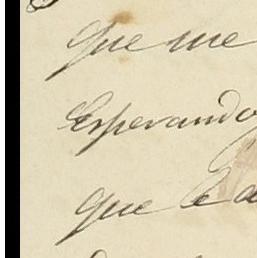 que me
Esperando
que le a